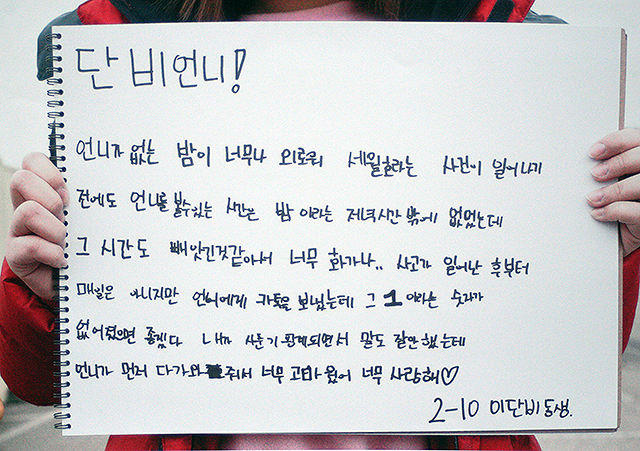 단비언니!
언니가 없는 밤이 너무나 외로워 세월호라는 사건이 일어나기
전에도 언니를 볼수있는 시간은 밤이라는 저녁시간 밖에 없었는데
그 시간도 빼앗긴것같아서 너무 화가나.. 사고가 일어난 후부터
매일은 아니지만 언니에게 카톡을 보냈는데 그 1 이라는 숫자가
없어졌으면 좋겠다 내가 사춘기 되면서 말도 잘안했는데
언니가 먼저 다가와 줘서 너무 고마웠어 너무 사랑해♡
2-10 이단비 동생.